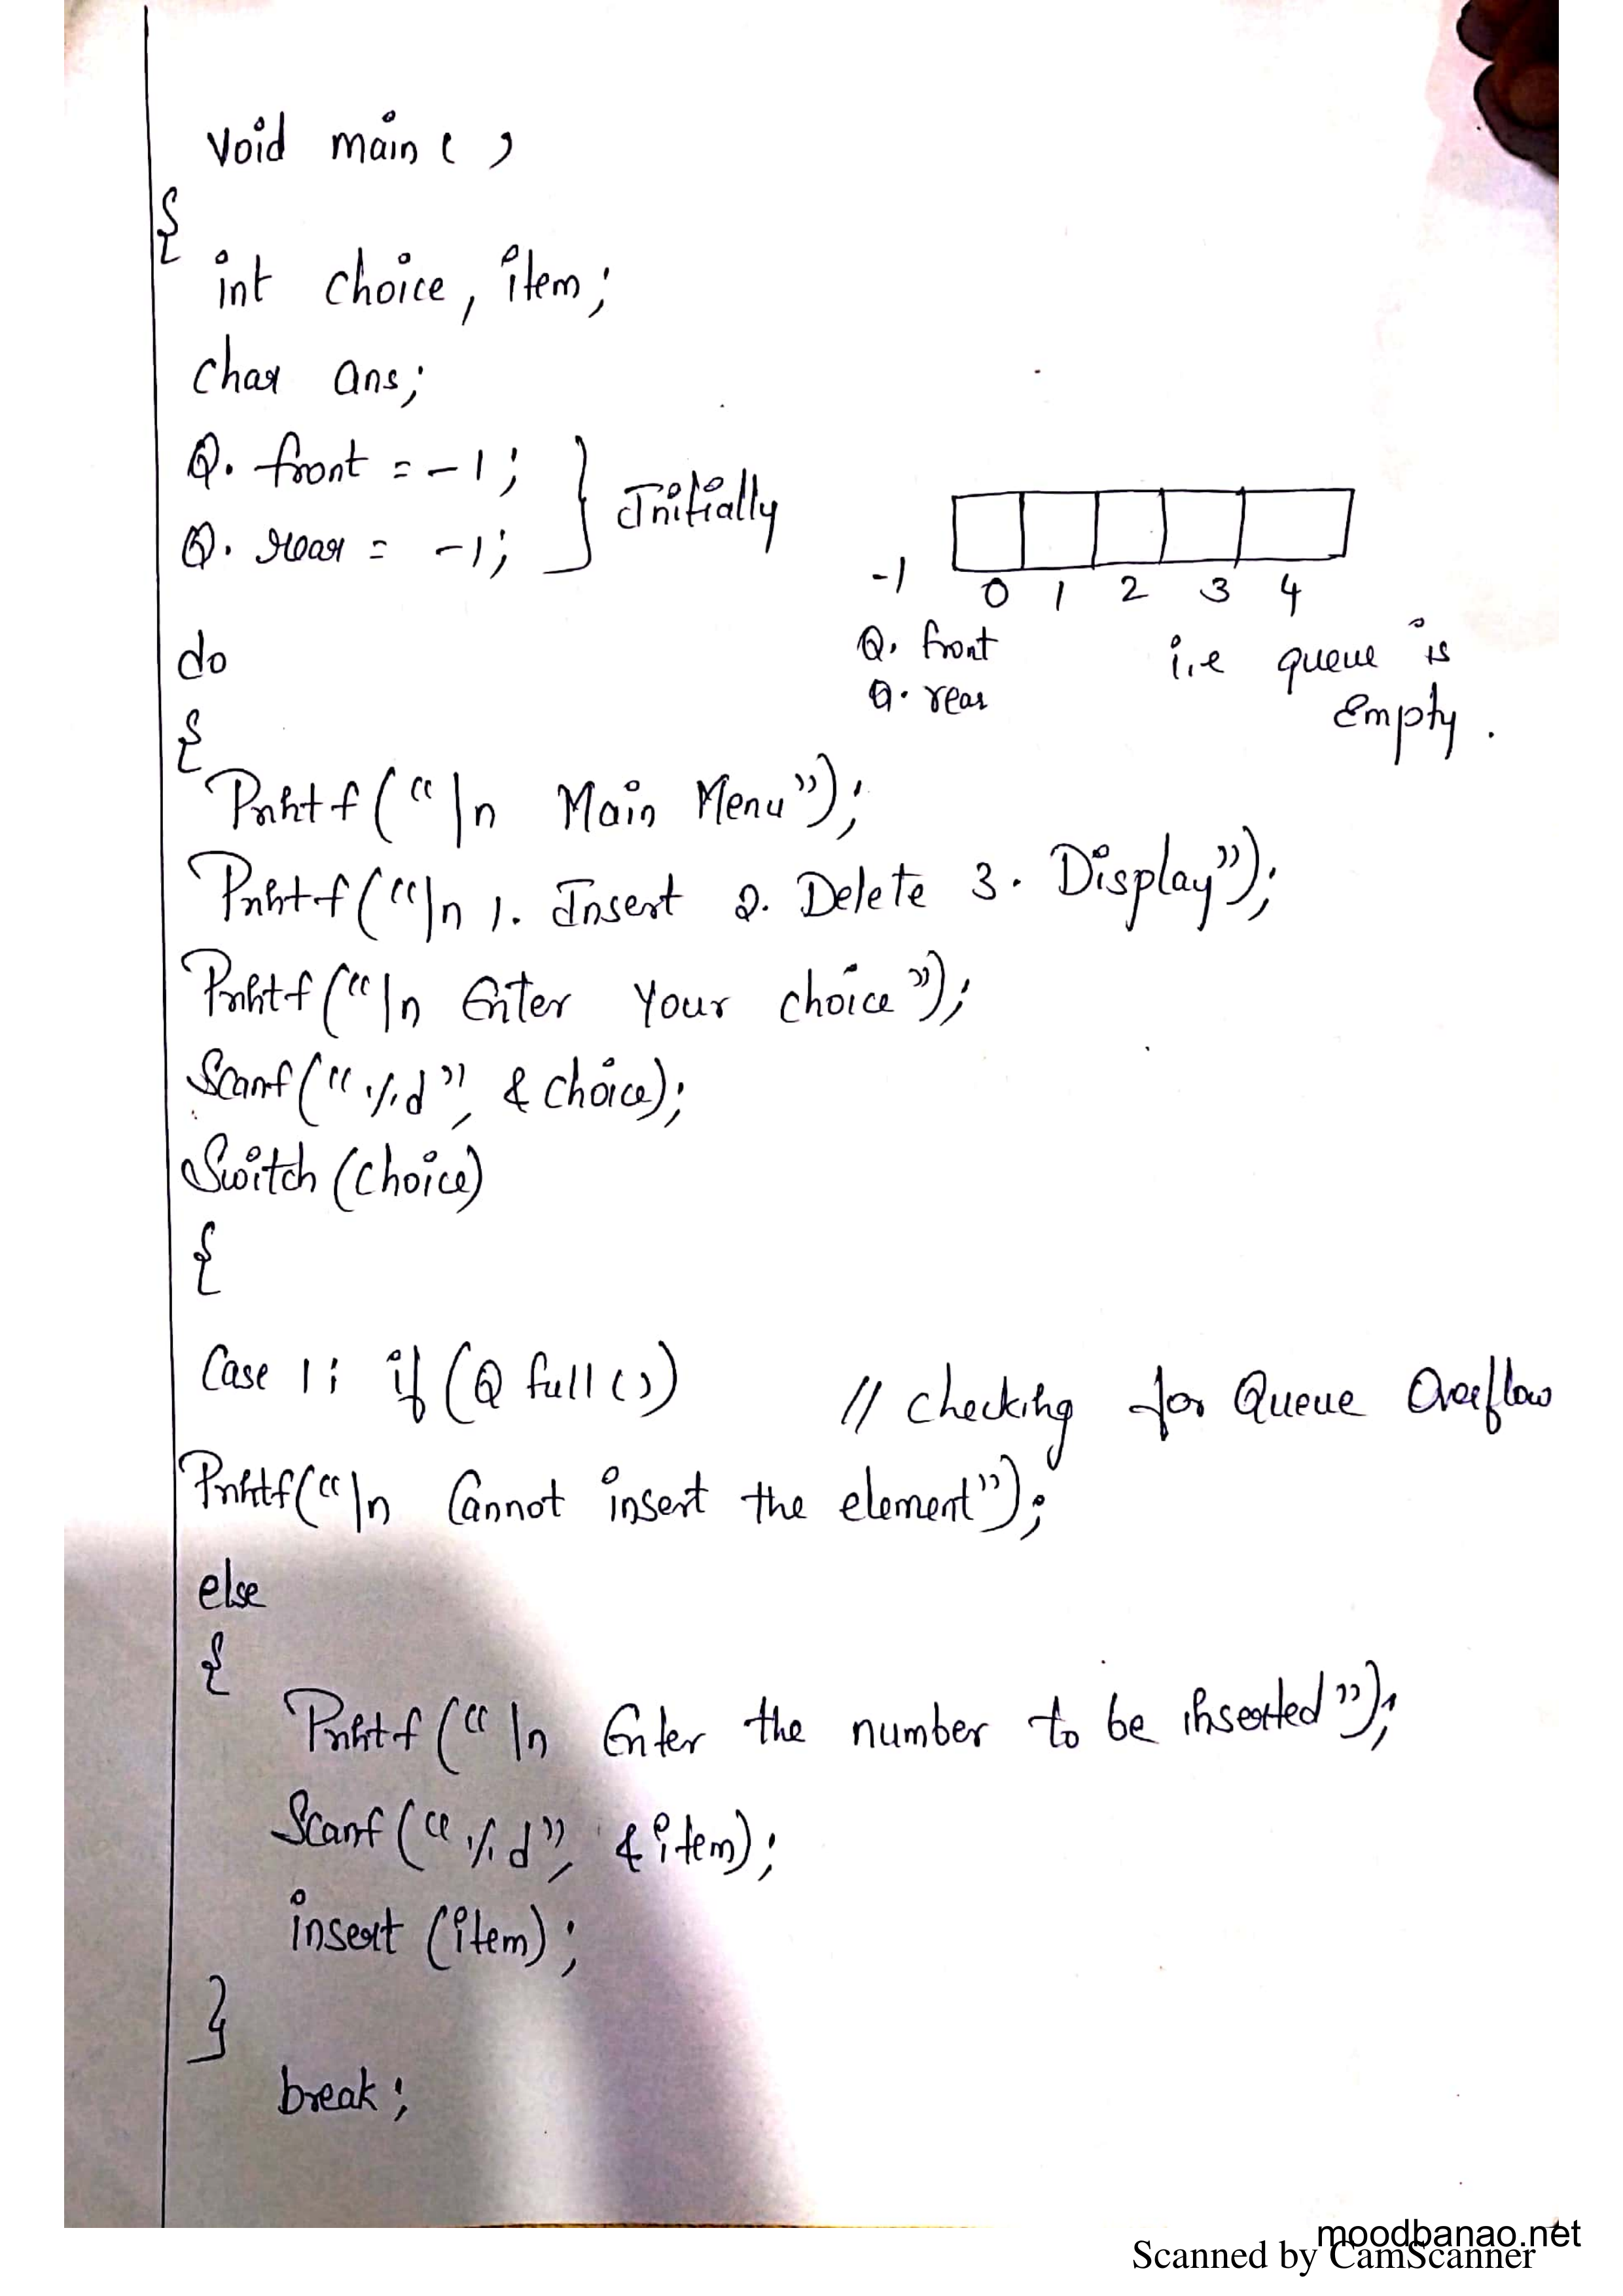 Void main ( )
{
int choice, item;
char ans;
Q. front = -1; } Initially
Q. rear = -1;
-1 0 1 2 3 4
Q. front i.e queue is
Q. rear Empty.
do
{
Printf("\n Main Menu");
Printf("\n 1. Insert 2. Delete 3. Display");
Printf("\n Enter Your choice");
Scanf("%d", &choice);
Switch (choice)
{
Case 1: if (Q full ( )) // checking for Queue Overflow
Printf("\n Cannot insert the element");
else
{
Printf("\n Enter the number to be inserted");
Scanf("%d", &item);
insert (item);
}
break;
moodbanao.net
Scanned by CamScanner